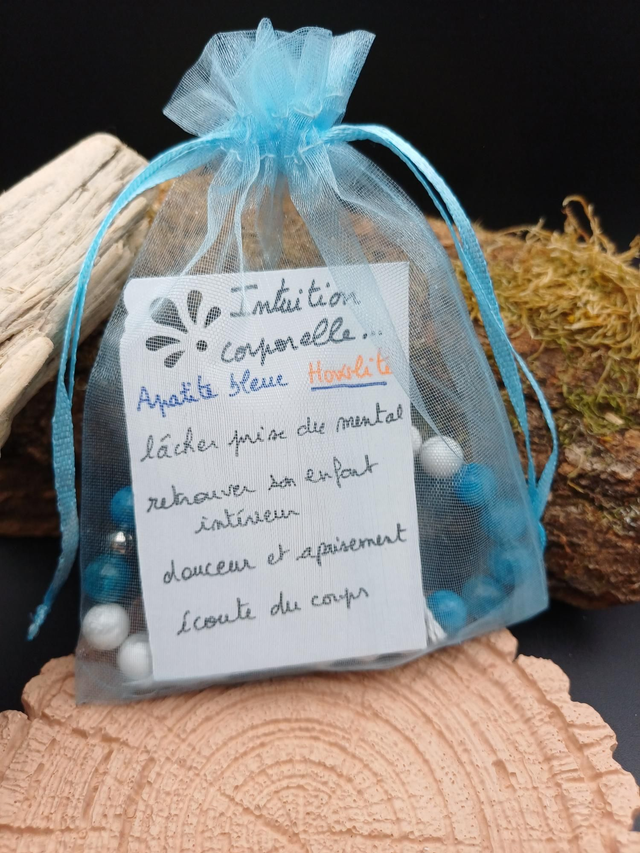 Intuition
corporelle...
Apatite bleue Howlite
lâcher prise du mental
retrouver son enfant
intérieur
douceur et apaisement
écoute du corps